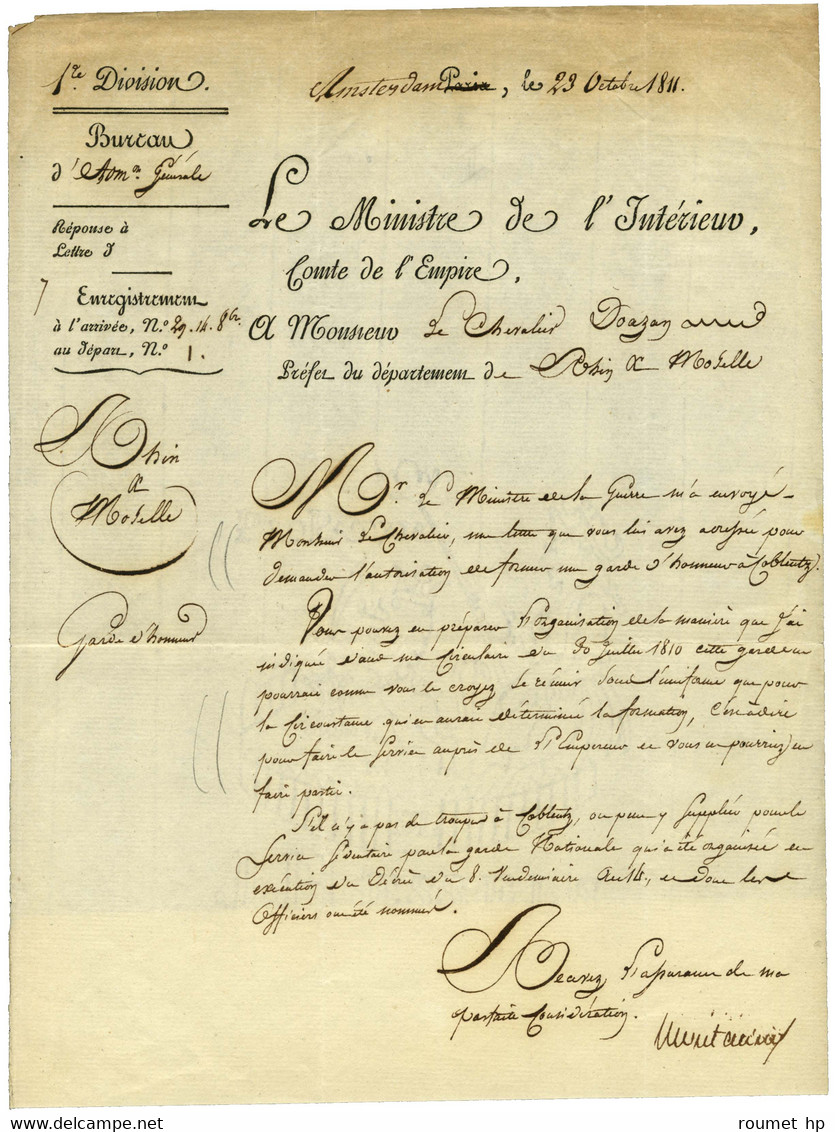 1re. Division.
Bureau
d'Admon. Générale
Réponse à
Lettre d
Enregistrement
à l'arrivée, N.o 29. 14. 8bre.
au Départ, N.o 1.
Rhin
&
Moselle
Garde d'honneur
Amsterdam Paris, le 23 Octobre 1811.
Le Ministre de l'Intérieur,
Comte de l'Empire,
A Monsieur Le Chevalier Doazan
Préfet du département de Rhin & Moselle
Mr. Le Ministre de la Guerre m'a envoyé
Monsieur Le Chevalier, une lettre que vous lui avez adressée pour
demander l'autorisation de former une garde d'honneur à Coblentz.
Vous pouvez en préparer l'organisation de la manière que j'ai
indiquée dans ma Circulaire du 30 Juillet 1810 cette garde ne
pourrait comme vous le croyez se réunir sous l'uniforme que pour
la Circonstance qui en aurait déterminé la formation, C'est à dire
pour faire le Service auprès de l'Empereur et vous ne pourriez en
faire partie.
S'il n'y a pas de troupes à Coblentz, on peut y Suppléer pour le
Service Sédentaire par la garde Nationale qui a été organisée en
exécution du Décret du 8. Vendémiaire an 14, et dont les
Officiers ont été nommés.
Recevez, l'assurance de ma
parfaite Considération.
Montalivet
roumet hp
www.delcampe.net